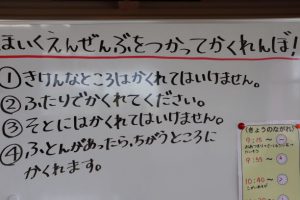 ほいくえんぜんぶをつかってかくれんぼ!
①きけんなところはかくれてはいけません。
②ふたりでかくれてください。
③そとにはかくれてはいけません。
④ふとんがあったら、ちがうところに
かくれます。
〈きょうのながれ〉
9:15〜
9:55〜
10:40〜